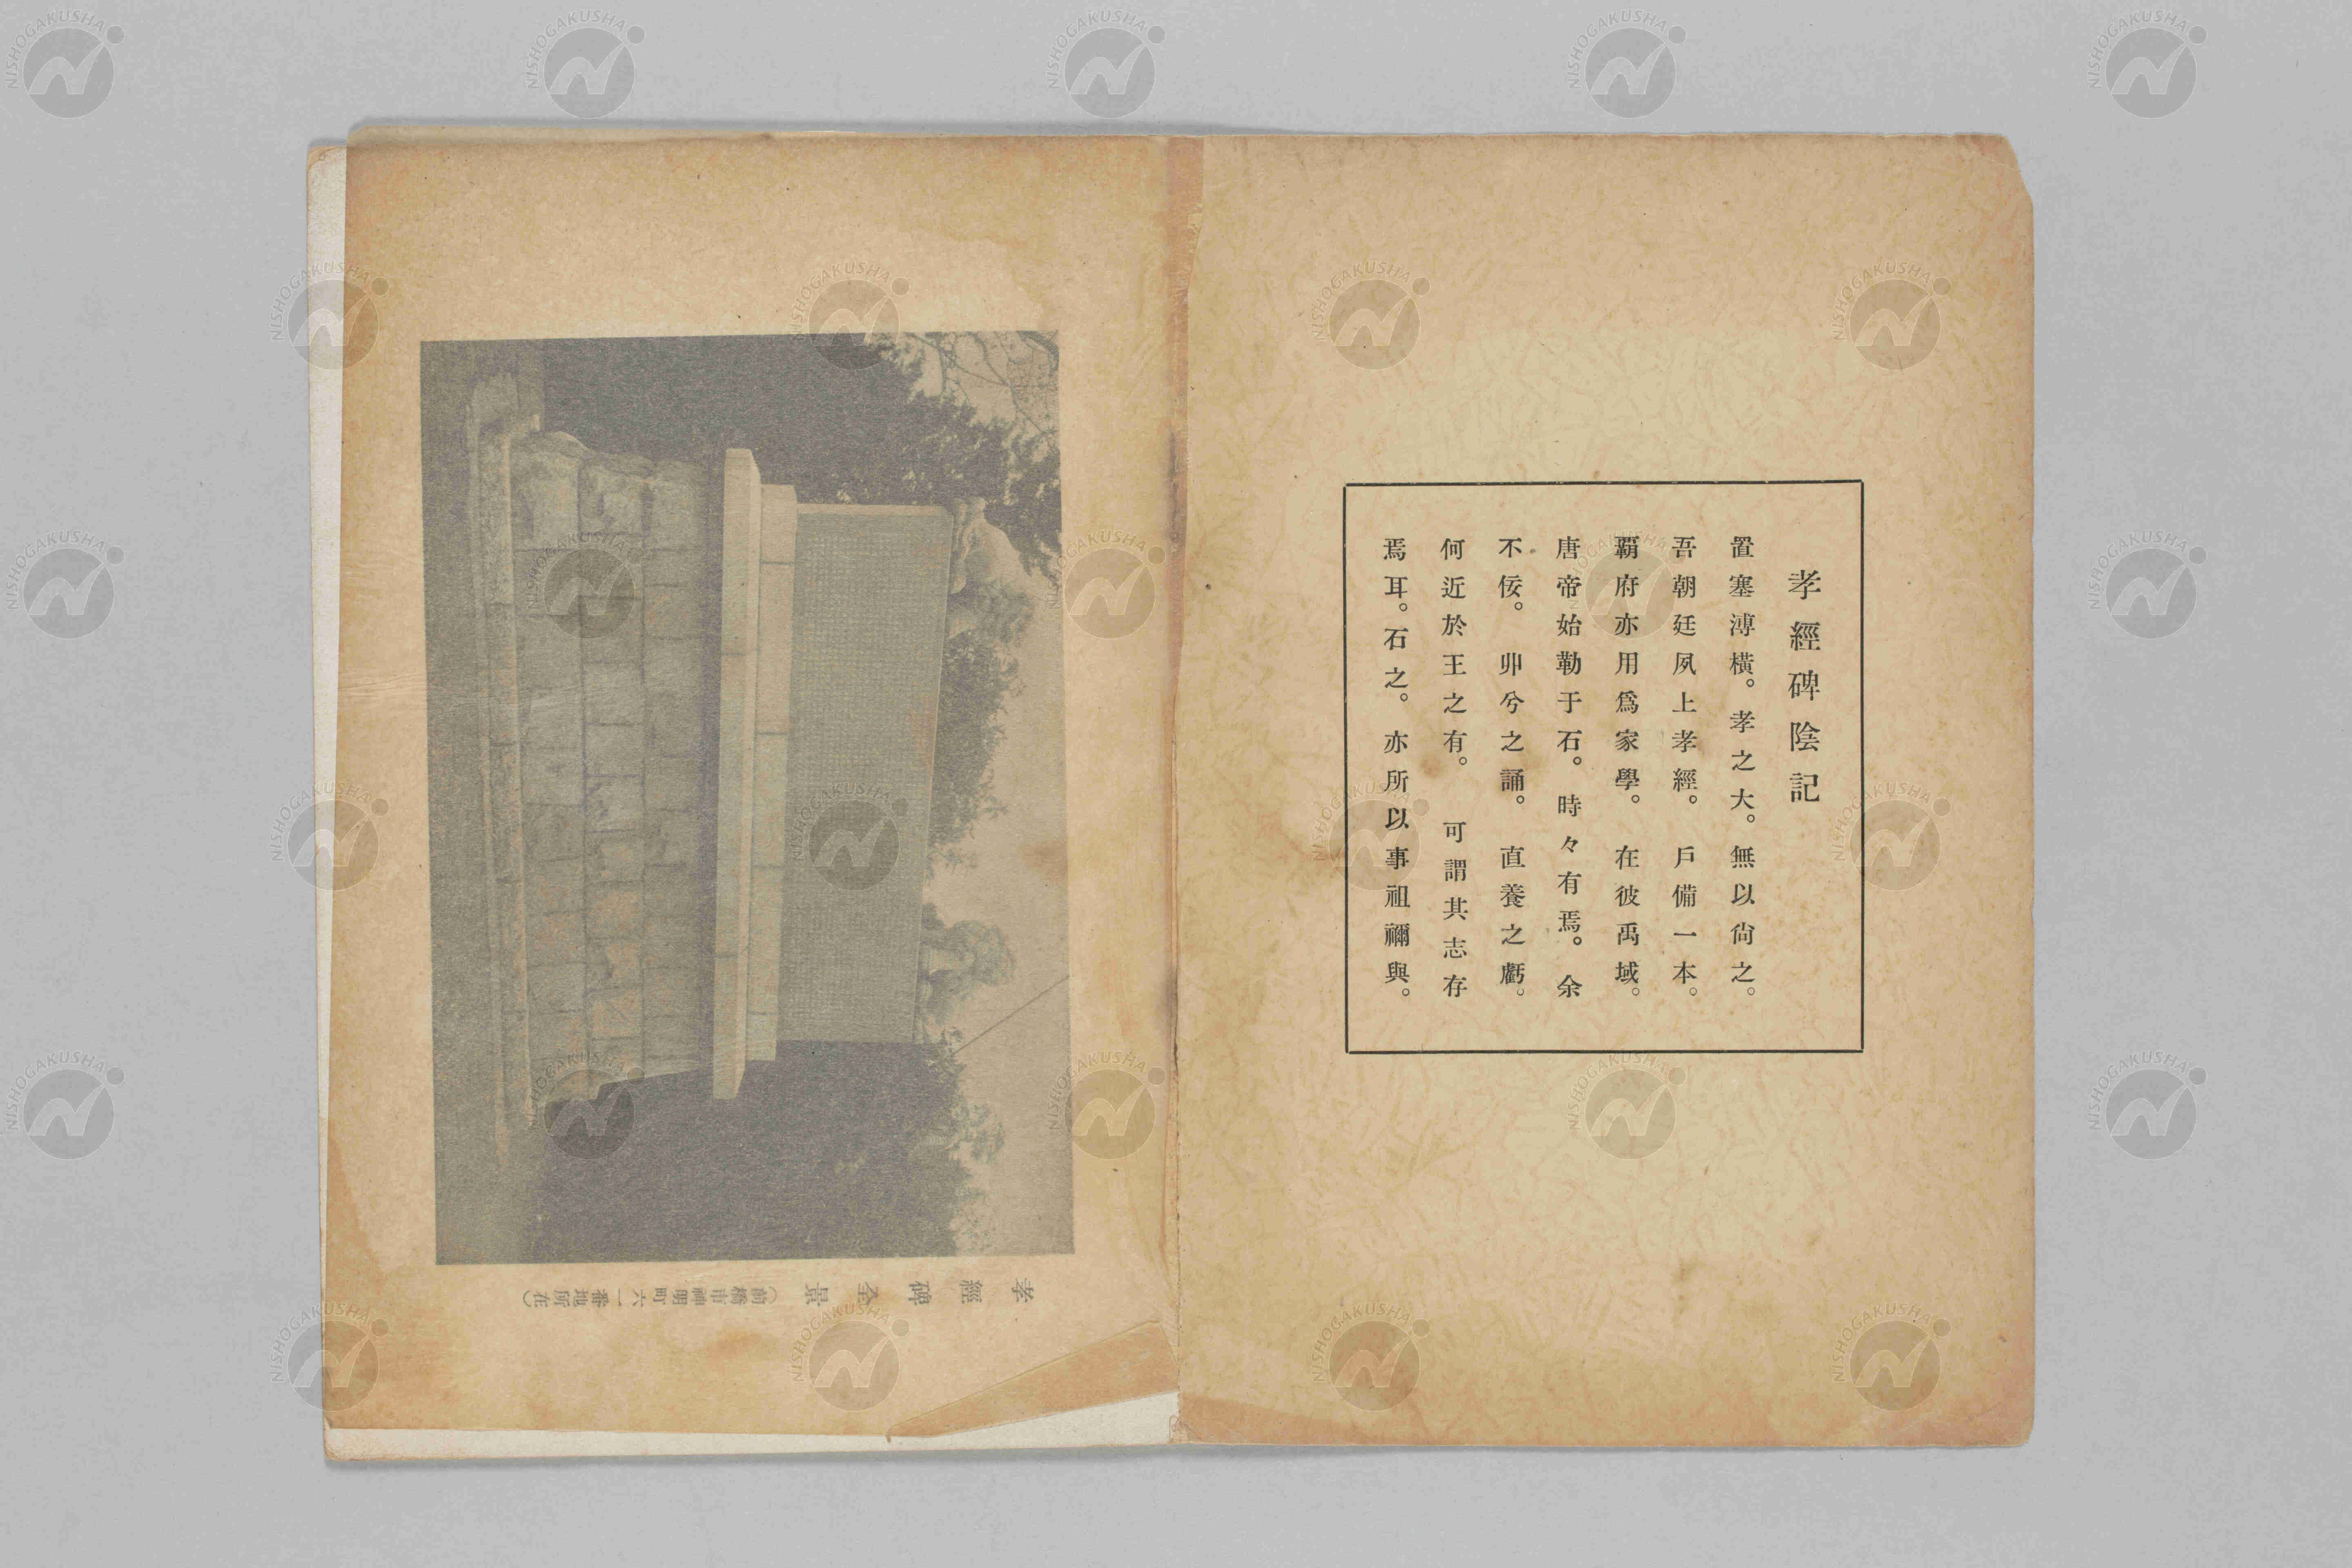 孝經碑陰記
置塞溥橫。孝之大。無以尙之。
吾朝廷夙上孝經。戶備一本。
覇府亦用爲家學。在彼禹域。
唐帝始勒于石。時々有焉。余
不佞。丱兮之誦。直養之虧。
何近於王之有。可謂其志存
焉耳。石之。亦所以事祖禰與。
孝經碑全景(前橋市神明町六一番地所在)
NISHOGAKUSHA